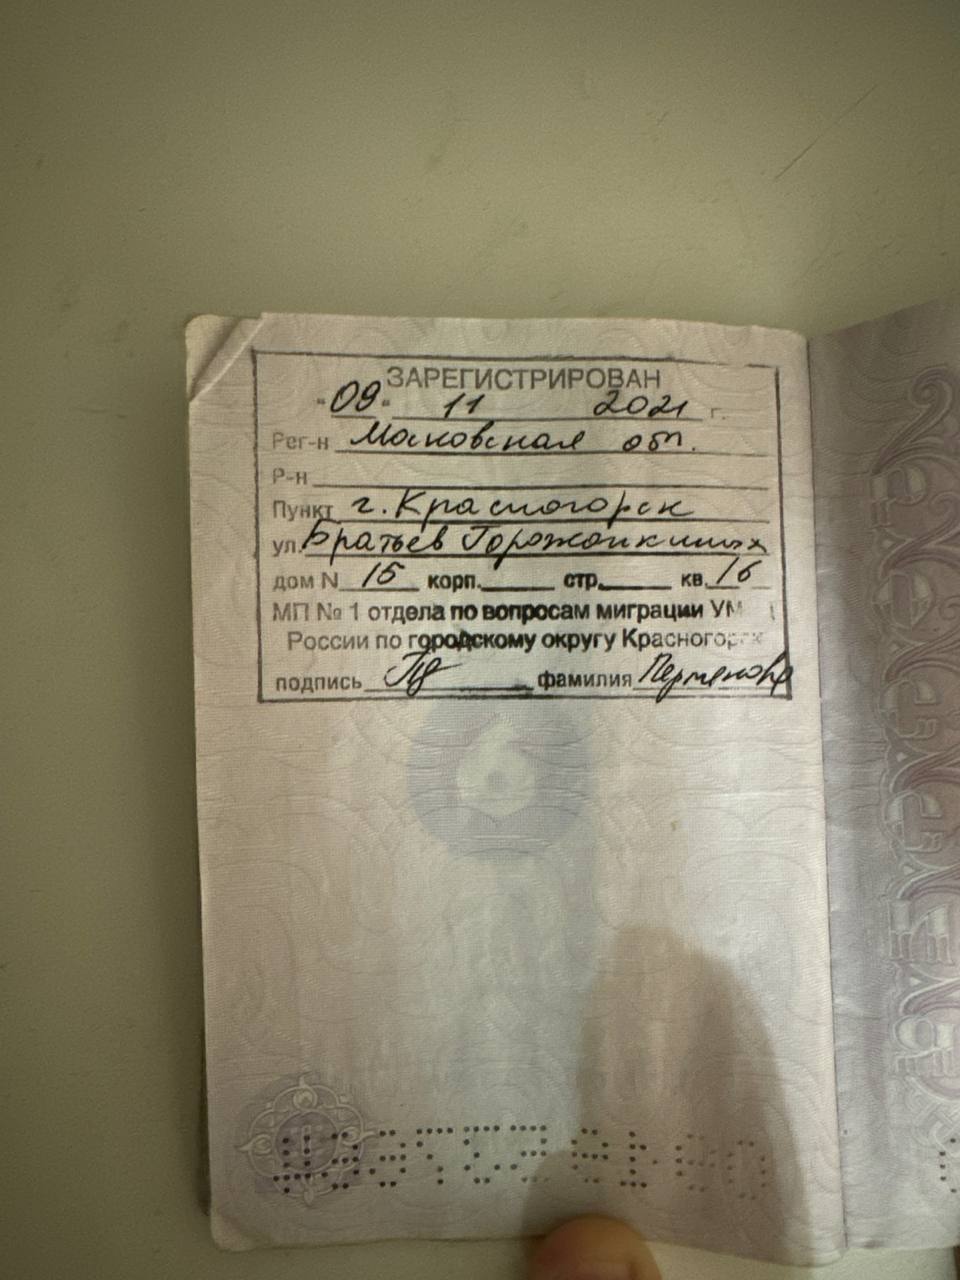 ЗАРЕГИСТРИРОВАН
"09" 11 2021 г.
Рег-н Московская обл.
Р-н
Пункт г. Красногорск
ул. Братьев Горожанкиных
дом N 15 корп. стр. кв. 16
МП № 1 отдела по вопросам миграции УМ
России по городскому округу Красногорск
подпись фамилия